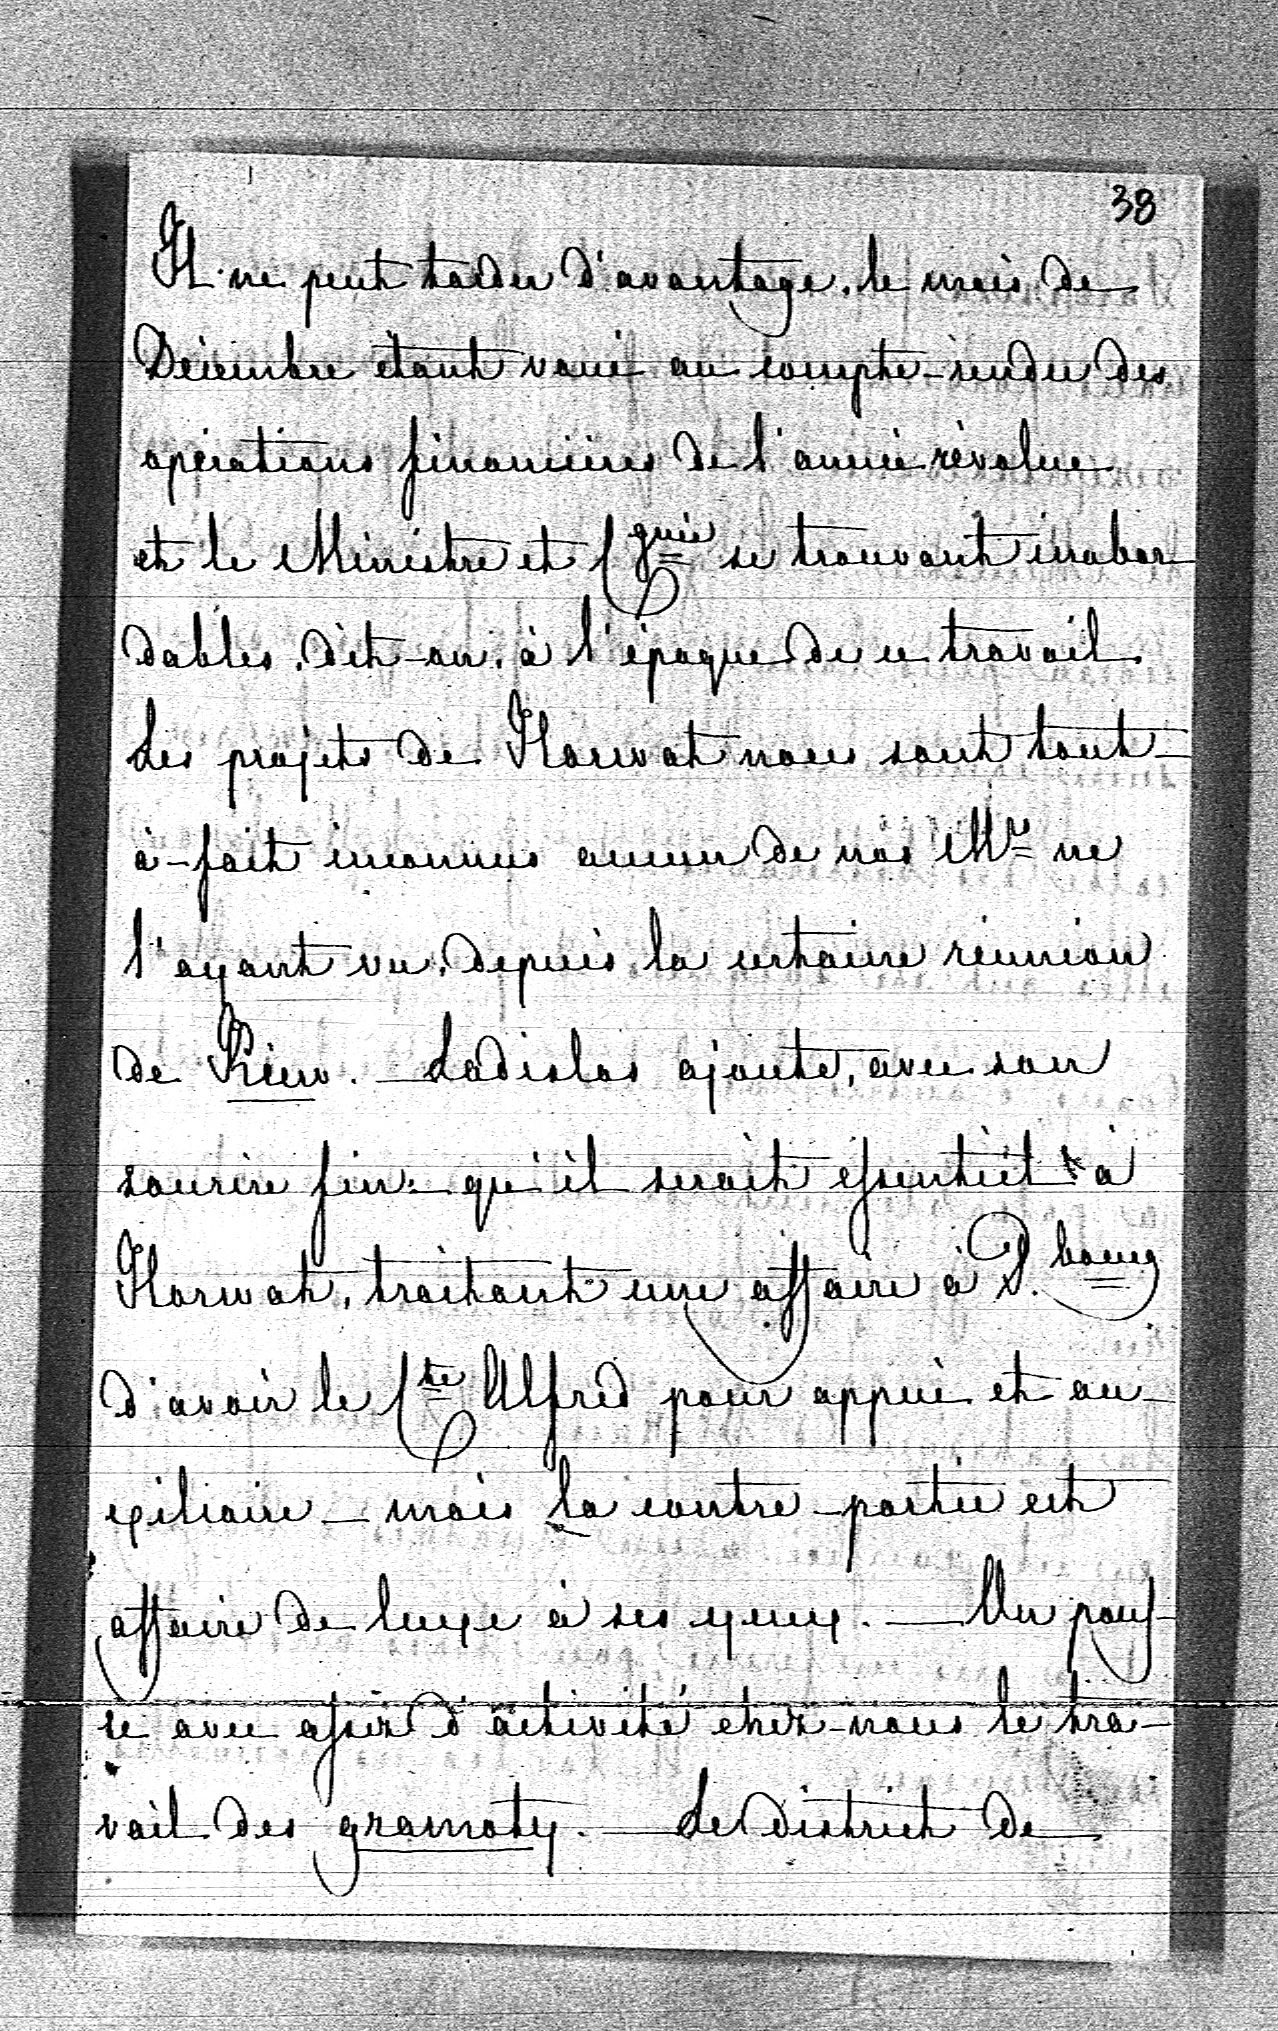 38
Il ne peut tarder d'avantage, le mois de
Décembre étant voué au compte-rendu des
opérations financières de l'année révolue
et le Ministre et Cgnie se trouvant inabor-
dables, dit-on, à l'époque de ce travail.
Les projets de Horwat nous sont tout-
à-fait inconnus aucun de nos Mrs ne
l'ayant vu, depuis la certaine réunion
de Kiew. — Ladislas ajoute, avec son
sourire fin: qu'il serait essentiel à
Horwat, traitant une affaire à P.bourg
d'avoir le Cte Alfred pour appui et au-
xiliaire — mais la contre-partie est
affaire de luxe à ses yeux. — On pous-
se avec assez d'activité chez-nous le tra-
vail des gramoty. — Le district de